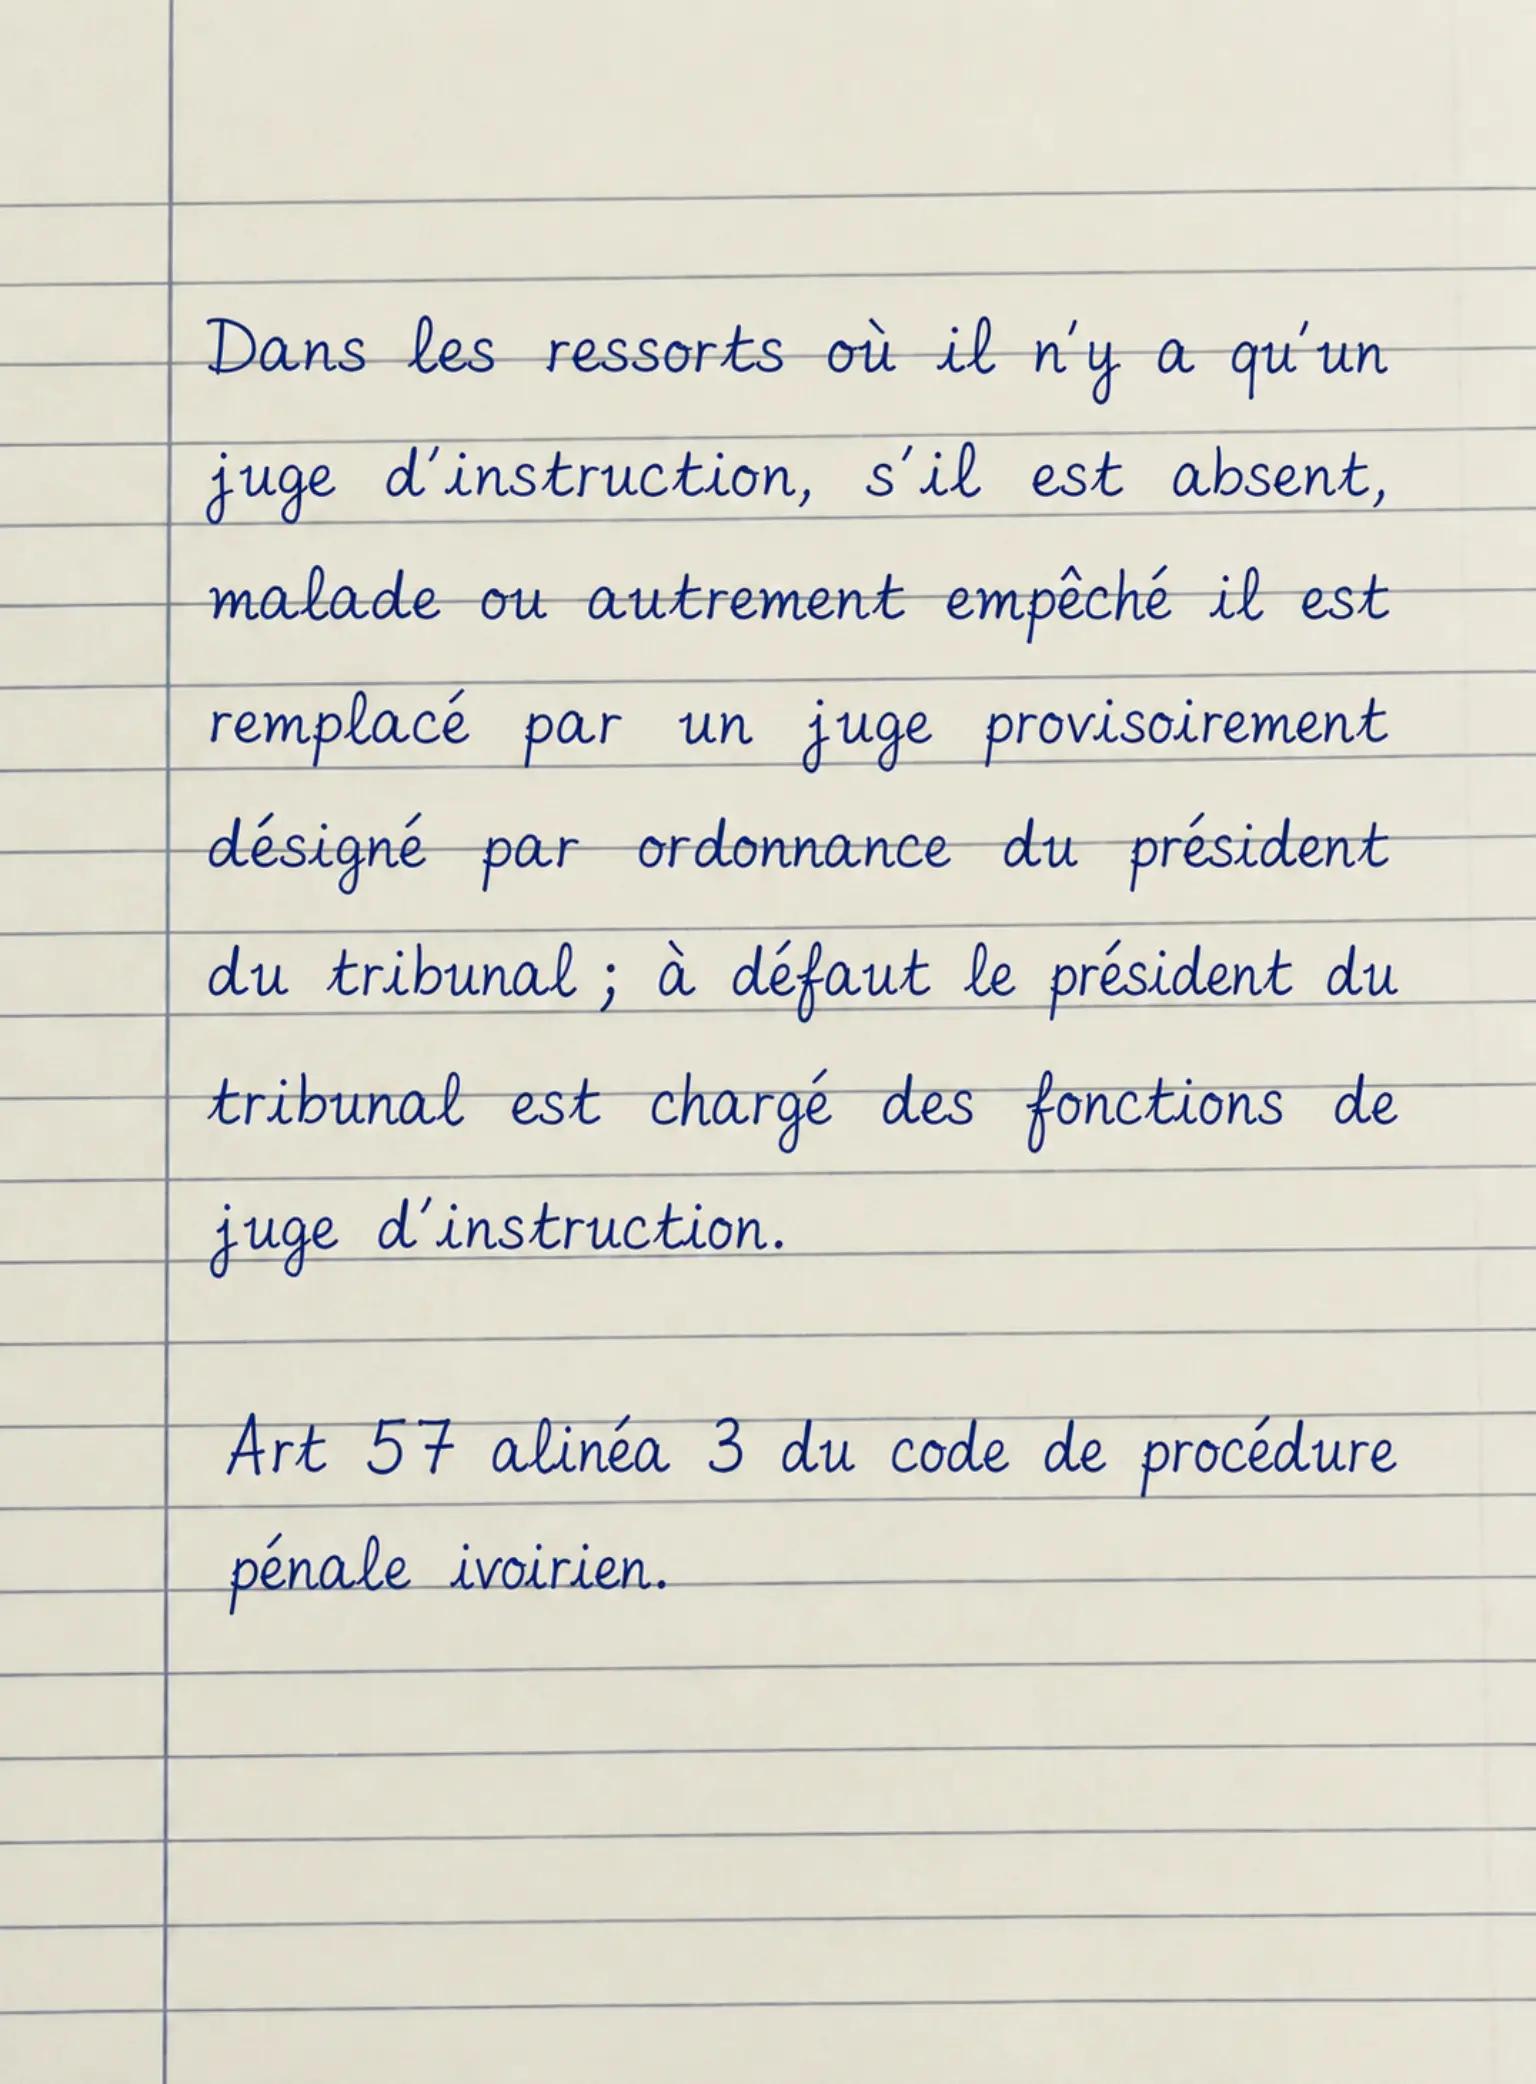 Dans les ressorts où il n'y a qu'un
juge d'instruction, s'il est absent,
malade ou autrement empêché il est
remplacé par un juge provisoirement
désigné par ordonnance du président
du tribunal ; à défaut le président du
tribunal est chargé des fonctions de
juge d'instruction.
Art 57 alinéa 3 du code de procédure
pénale ivoirien.